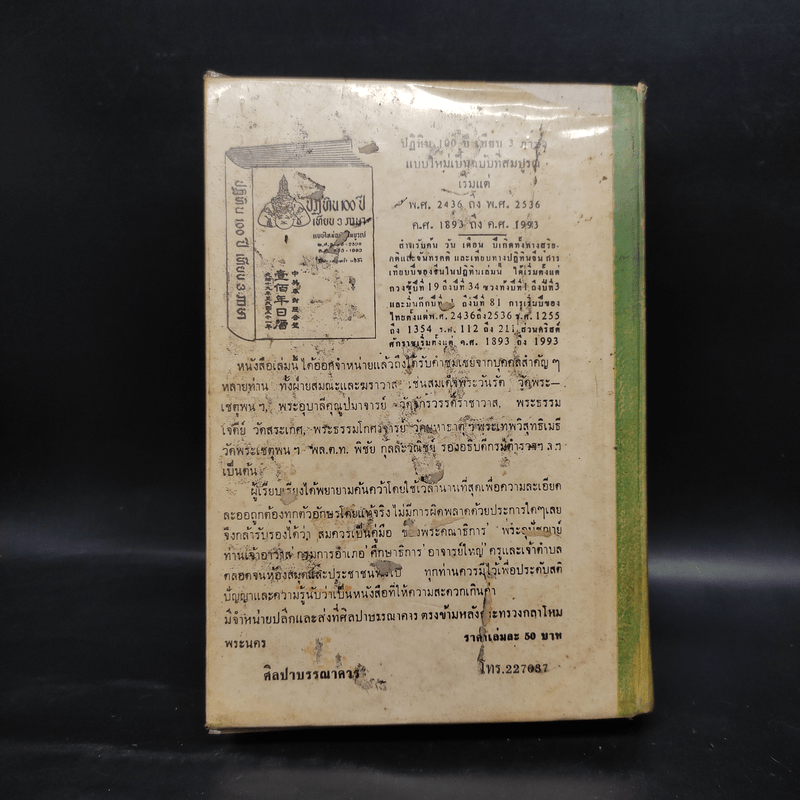 ปฏิทิน 100 ปี เทียบ 3 ภาษา
แบบใหม่เป็นฉบับที่สมบูรณ์
เริ่มแต่
พ.ศ. 2436 ถึง พ.ศ. 2536
ค.ศ. 1893 ถึง ค.ศ. 1993
สำหรับค้น วัน เดือน ปีเกิดทั้งทางสุริย-
คติและจันทรคติ และเทียบทางปฏิทินจีน การ
เทียบปีของจีนในปฏิทินเล่มนี้ ได้เริ่มตั้งแต่
กวงซู้ปีที่ 19 ถึงปีที่ 34 ซวงท้งปีที่ 1 ถึงปีที่ 3
และมิ่นก๊กปีที่ 1 ถึงปีที่ 81 การเริ่มปีของ
ไทยตั้งแต่พ.ศ. 2436 ถึง 2536 จ.ศ. 1255
ถึง 1354 ร.ศ. 112 ถึง 211 ส่วนคริสต์
ศักราชเริ่มตั้งแต่ ค.ศ. 1893 ถึง 1993
ปฏิทิน 100 ปี เทียบ 3 ภาษา
ปฏิทิน 100 ปี
เทียบ 3 ภาษา
壹佰年日曆
หนังสือเล่มนี้ ได้ออกจำหน่ายแล้วถึงได้รับคำชมเชยจากบุคคลสำคัญ ๆ
หลายท่าน ทั้งฝ่ายสมณะและฆราวาส เช่นสมเด็จพระวันรัต วัดพระ—
เชตุพน ฯ, พระอุบาลีคุณูปมาจารย์ วัดจักรวรรดิราชาวาส, พระธรรม
เจดีย์ วัดสระเกศ, พระธรรมโกศาจารย์ วัดมหาธาตุ ฯ พระเทพวิสุทธิเมธี
วัดพระเชตุพน ฯ พล.ต.ท. พิชัย กุลละวณิชย์ รองอธิบดีกรมตำรวจฯ ล.ฯ
เป็นต้น
ผู้เรียบเรียงได้พยายามค้นคว้าโดยใช้เวลานานที่สุดเพื่อความละเอียด
ละออถูกต้องทุกตัวอักษรโดยแท้จริง ไม่มีการผิดพลาดด้วยประการใดๆเลย
จึงกล้ารับรองได้ว่า สมควรเป็นคู่มือ ของพระคณาธิการ พระอุปัชฌาย์
ท่านเจ้าอาวาส กรมการอำเภอ ศึกษาธิการ อาจารย์ใหญ่ ครูและเจ้าตำบล
ตลอดจนห้องสมุดและประชาชนทั่วไป ทุกท่านควรมีไว้เพื่อประดับสติ
ปัญญาและความรู้นับว่าเป็นหนังสือที่ให้ความสะดวกเกินค่า
มีจำหน่ายปลีกและส่งที่ศิลปาบรรณาคาร ตรงข้ามหลังกระทรวงกลาโหม
พระนคร ราคาเล่มละ 50 บาท
ศิลปาบรรณาคาร โทร.227037